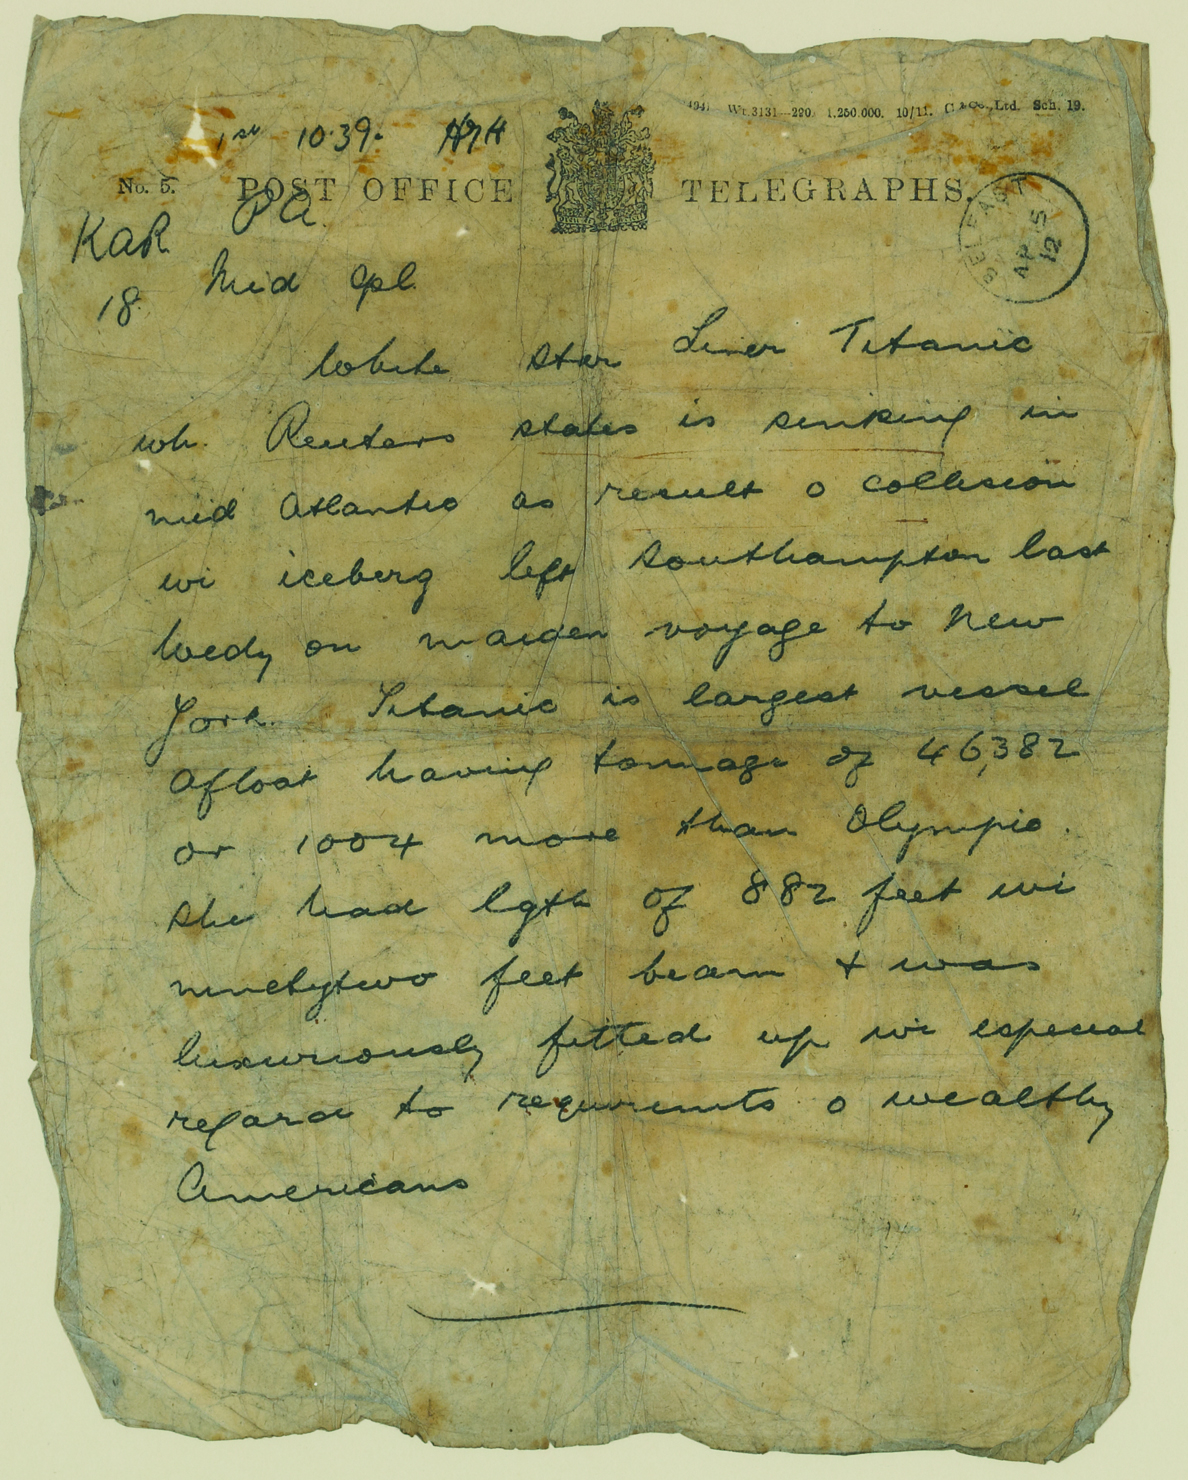 1st 10.39. HJH
Wt. 3131—290. 1,250,000. 10/11. Ltd. Sch. 19.
No. 5. POST OFFICE TELEGRAPHS.
BELFAST
AP 15
12
KaR PA
18 Mid Gpl
White Star Liner Titanic
wh. Reuters states is sinking in
mid Atlantic as result o collision
wi iceberg left Southampton last
Wedy on maiden voyage to New
York. Titanic is largest vessel
afloat having tonnage of 46,382
or 1004 more than Olympic.
She had lgth of 882 feet wi
ninetytwo feet beam & was
luxuriously fitted up wi especial
regard to requiremts o wealthy
Americans